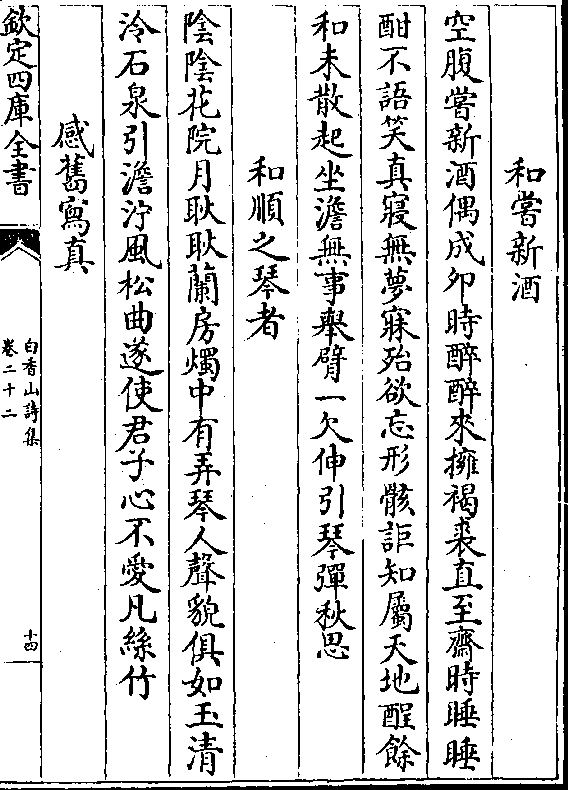 和嘗新酒
空腹嘗新酒偶成卯時醉醉來擁褐裘直至齋時睡睡
酣不語笑真寢無夢寐殆欲忘形骸詎知屬天地醒餘
和未散起坐澹無事舉臂一欠伸引琴彈秋思
和順之琴者
陰陰花院月耿耿蘭房燭中有弄琴人聲貌俱如玉清
泠石泉引澹濘風松曲遂使君子心不愛凡絲竹
感舊寫真
欽定四庫全書
白香山詩集
卷二十二
十四